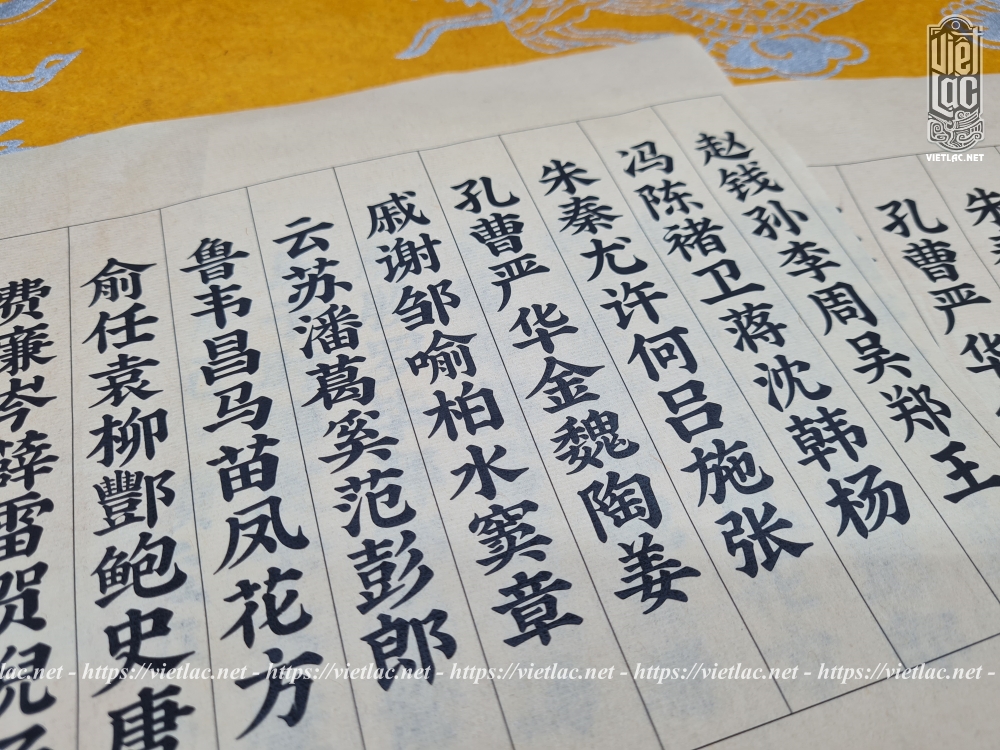 Việt
Lạc
VIETLAC.NET
朱
孔曹严华
赵钱孙李周吴郑王
冯陈褚卫蒋沈韩杨
朱秦尤许何吕施张
孔曹严华金魏陶姜
戚谢邹喻柏水窦章
云苏潘葛奚范彭郎
鲁韦昌马苗凤花方
俞任袁柳酆鲍史唐
费廉岑薛雷贺倪
lac.net - https://vietlac.net - https://vietlac.net - https://vietlac.net - https://vietlac.net - https://vietlac.net -